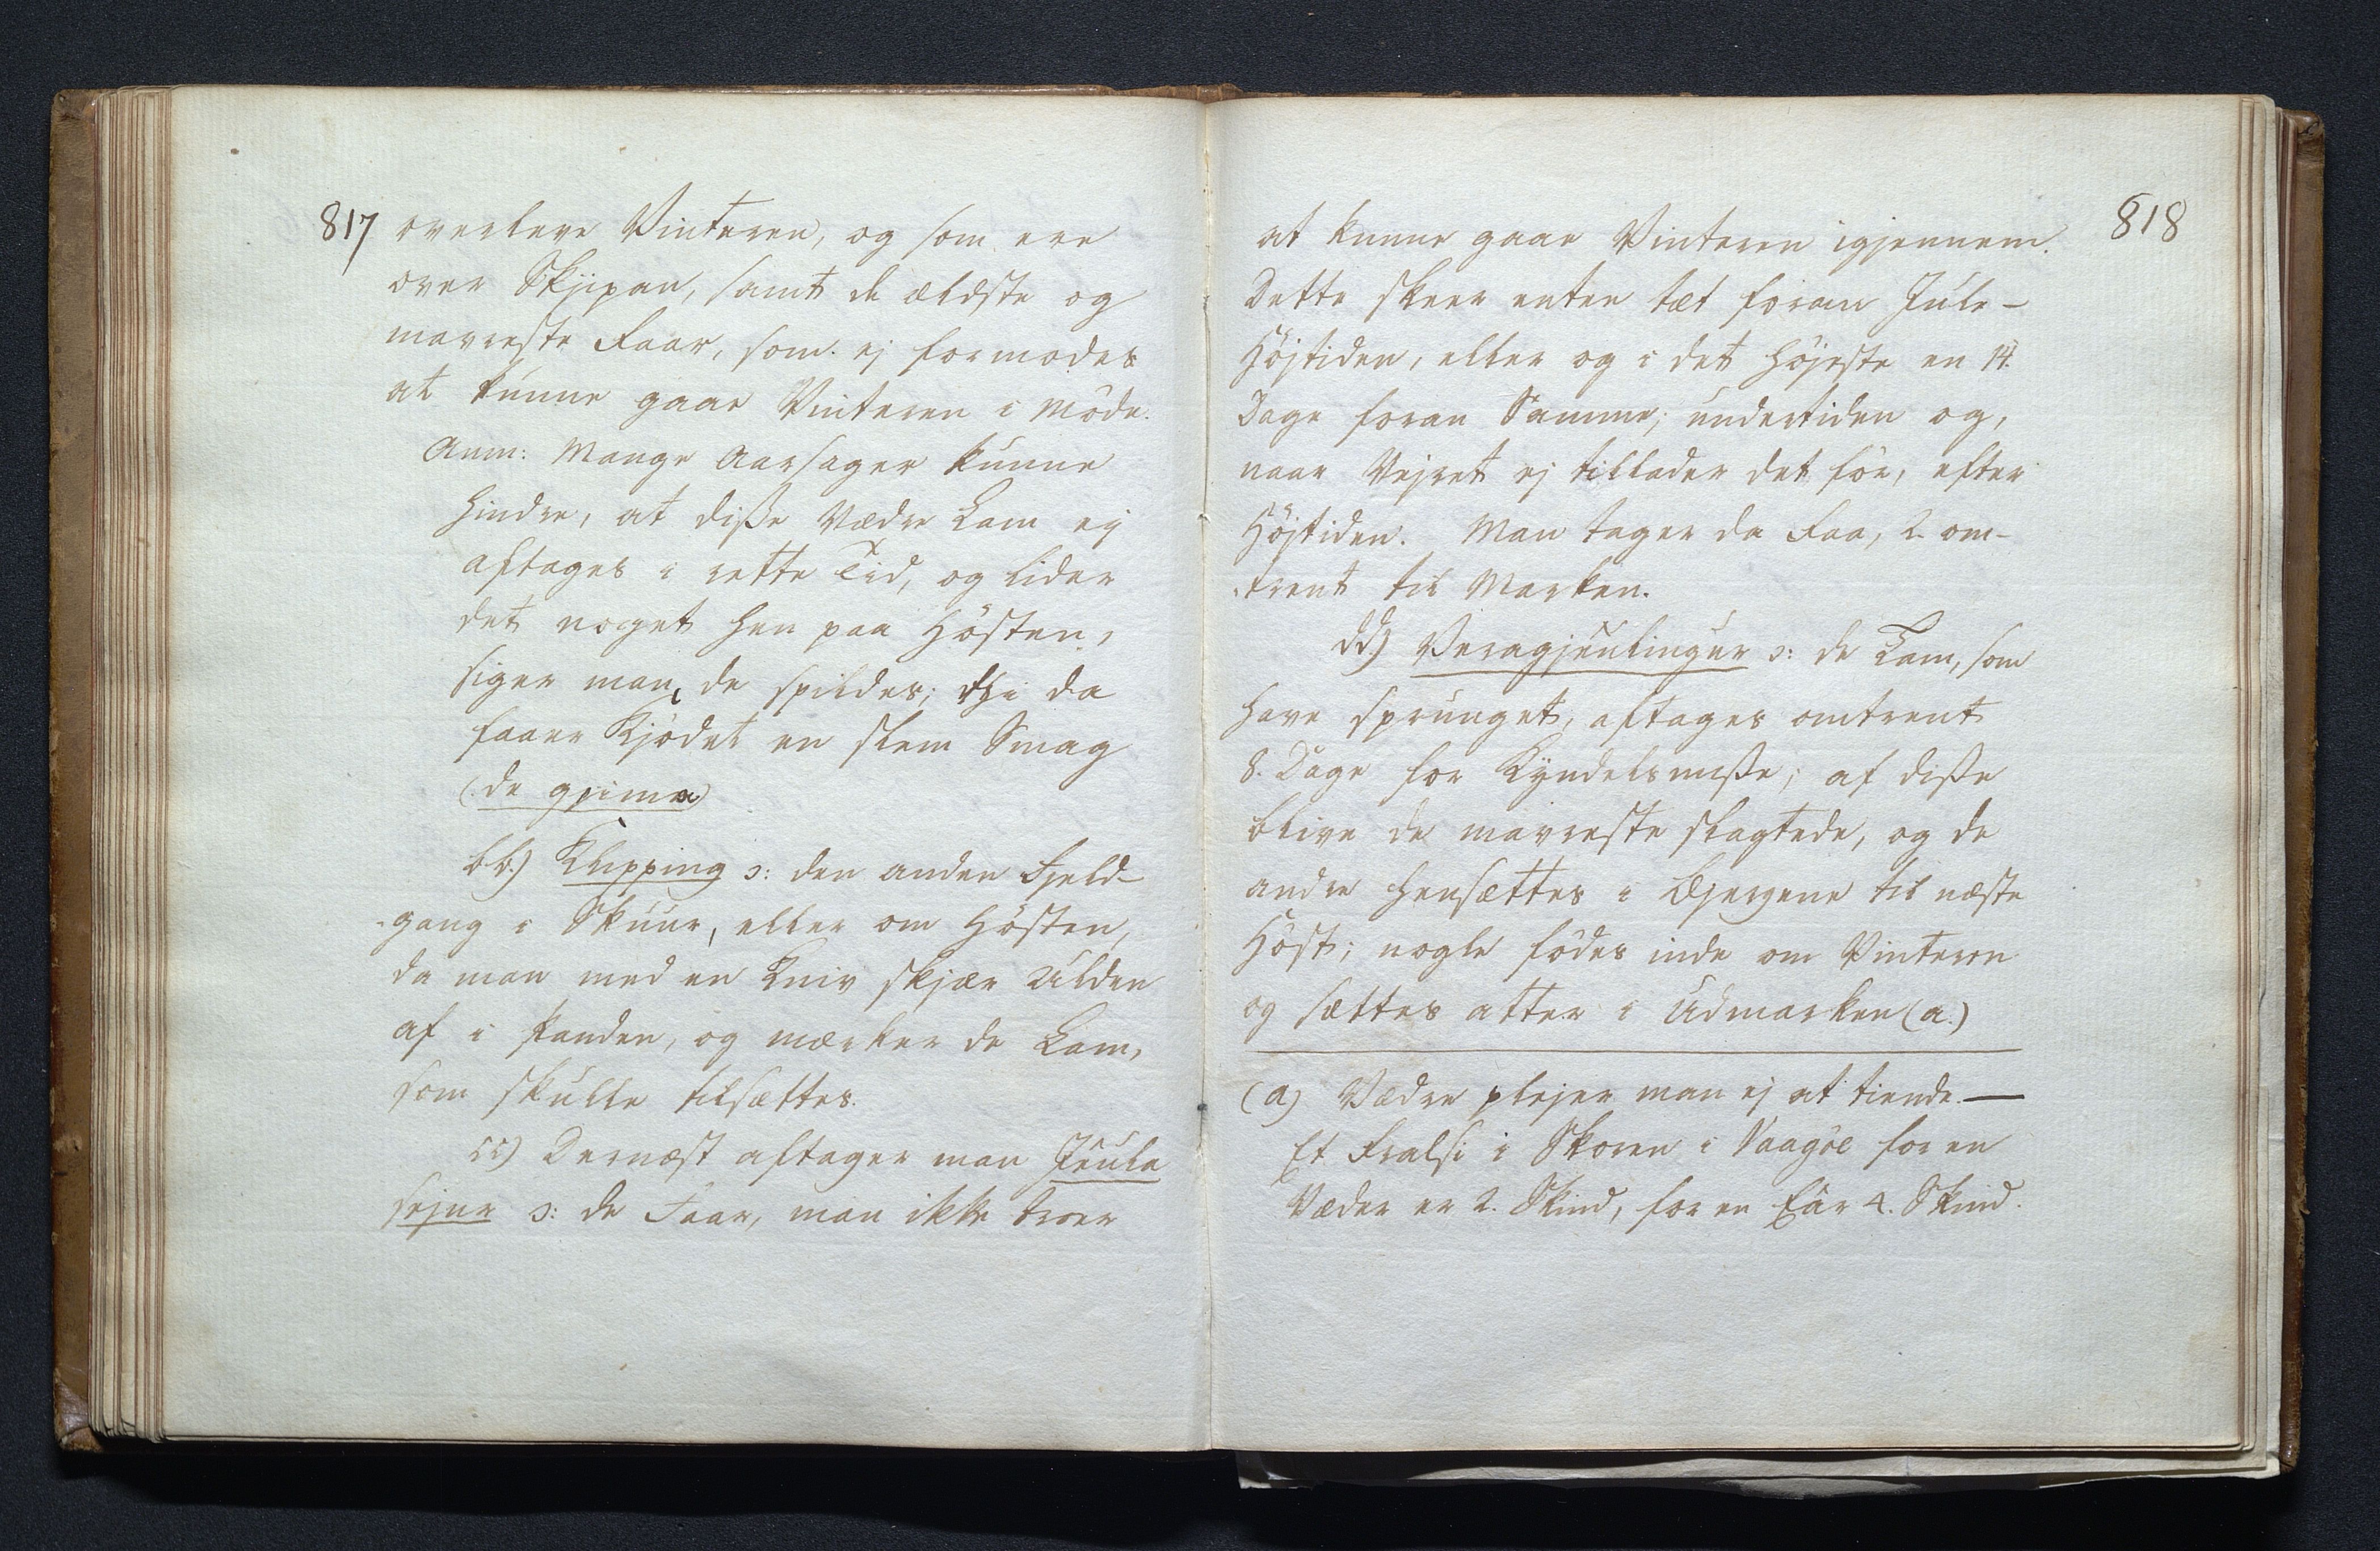 817
overleve Vinteren, og som ere
over Skjipan, samt de ældste og
mavreste Faar, som ej formodes
at kunne gaae Vinteren i Møde.
Anm: Mange Aarsager kunne
hindre, at disse Vædre Lam ej
aftages i rette Tid, og lider
det noget hen paa Høsten,
siger man, de spildes; thi da
faaer Kjødet en slem Smag
(de gjima)
bb.) Klipping ɔ: den anden Fjeld-
-gang i Skuur, eller om Høsten,
da man med en Kniv skjær Ulden
af i Panden, og mærker de Lam,
som skulle tilsættes.
cc) Dernæst aftager man Jeula
sejur ɔ: de Faar, man ikke troer
818
at kunne gaae Vinteren igjennem.
Dette skeer enten tæt foran Jule-
Højtiden, eller og i det højeste en 14.
Dage foran Samme; undertiden og,
naar Vejret ej tillader det før, efter
Højtiden. Man tager da Faa, 2 om-
-trent til Marken.
dd) Veragjeulingur ɔ: de Lam, som
have sprunget, aftages omtrent
8. Dage for Kyndelsmisse; af disse
blive de mavreste slagtede, og de
andre hensættes i Bjergene til næste
Høst; nogle fødes inde om Vinteren
og sættes atter i Udmarken (a.)
(a) Vædre plejer man ej at tiende.—
Et Fralsi i Skoren i Vaagøe for en
Væder er 2. Skind, for en Får 4. Skind.